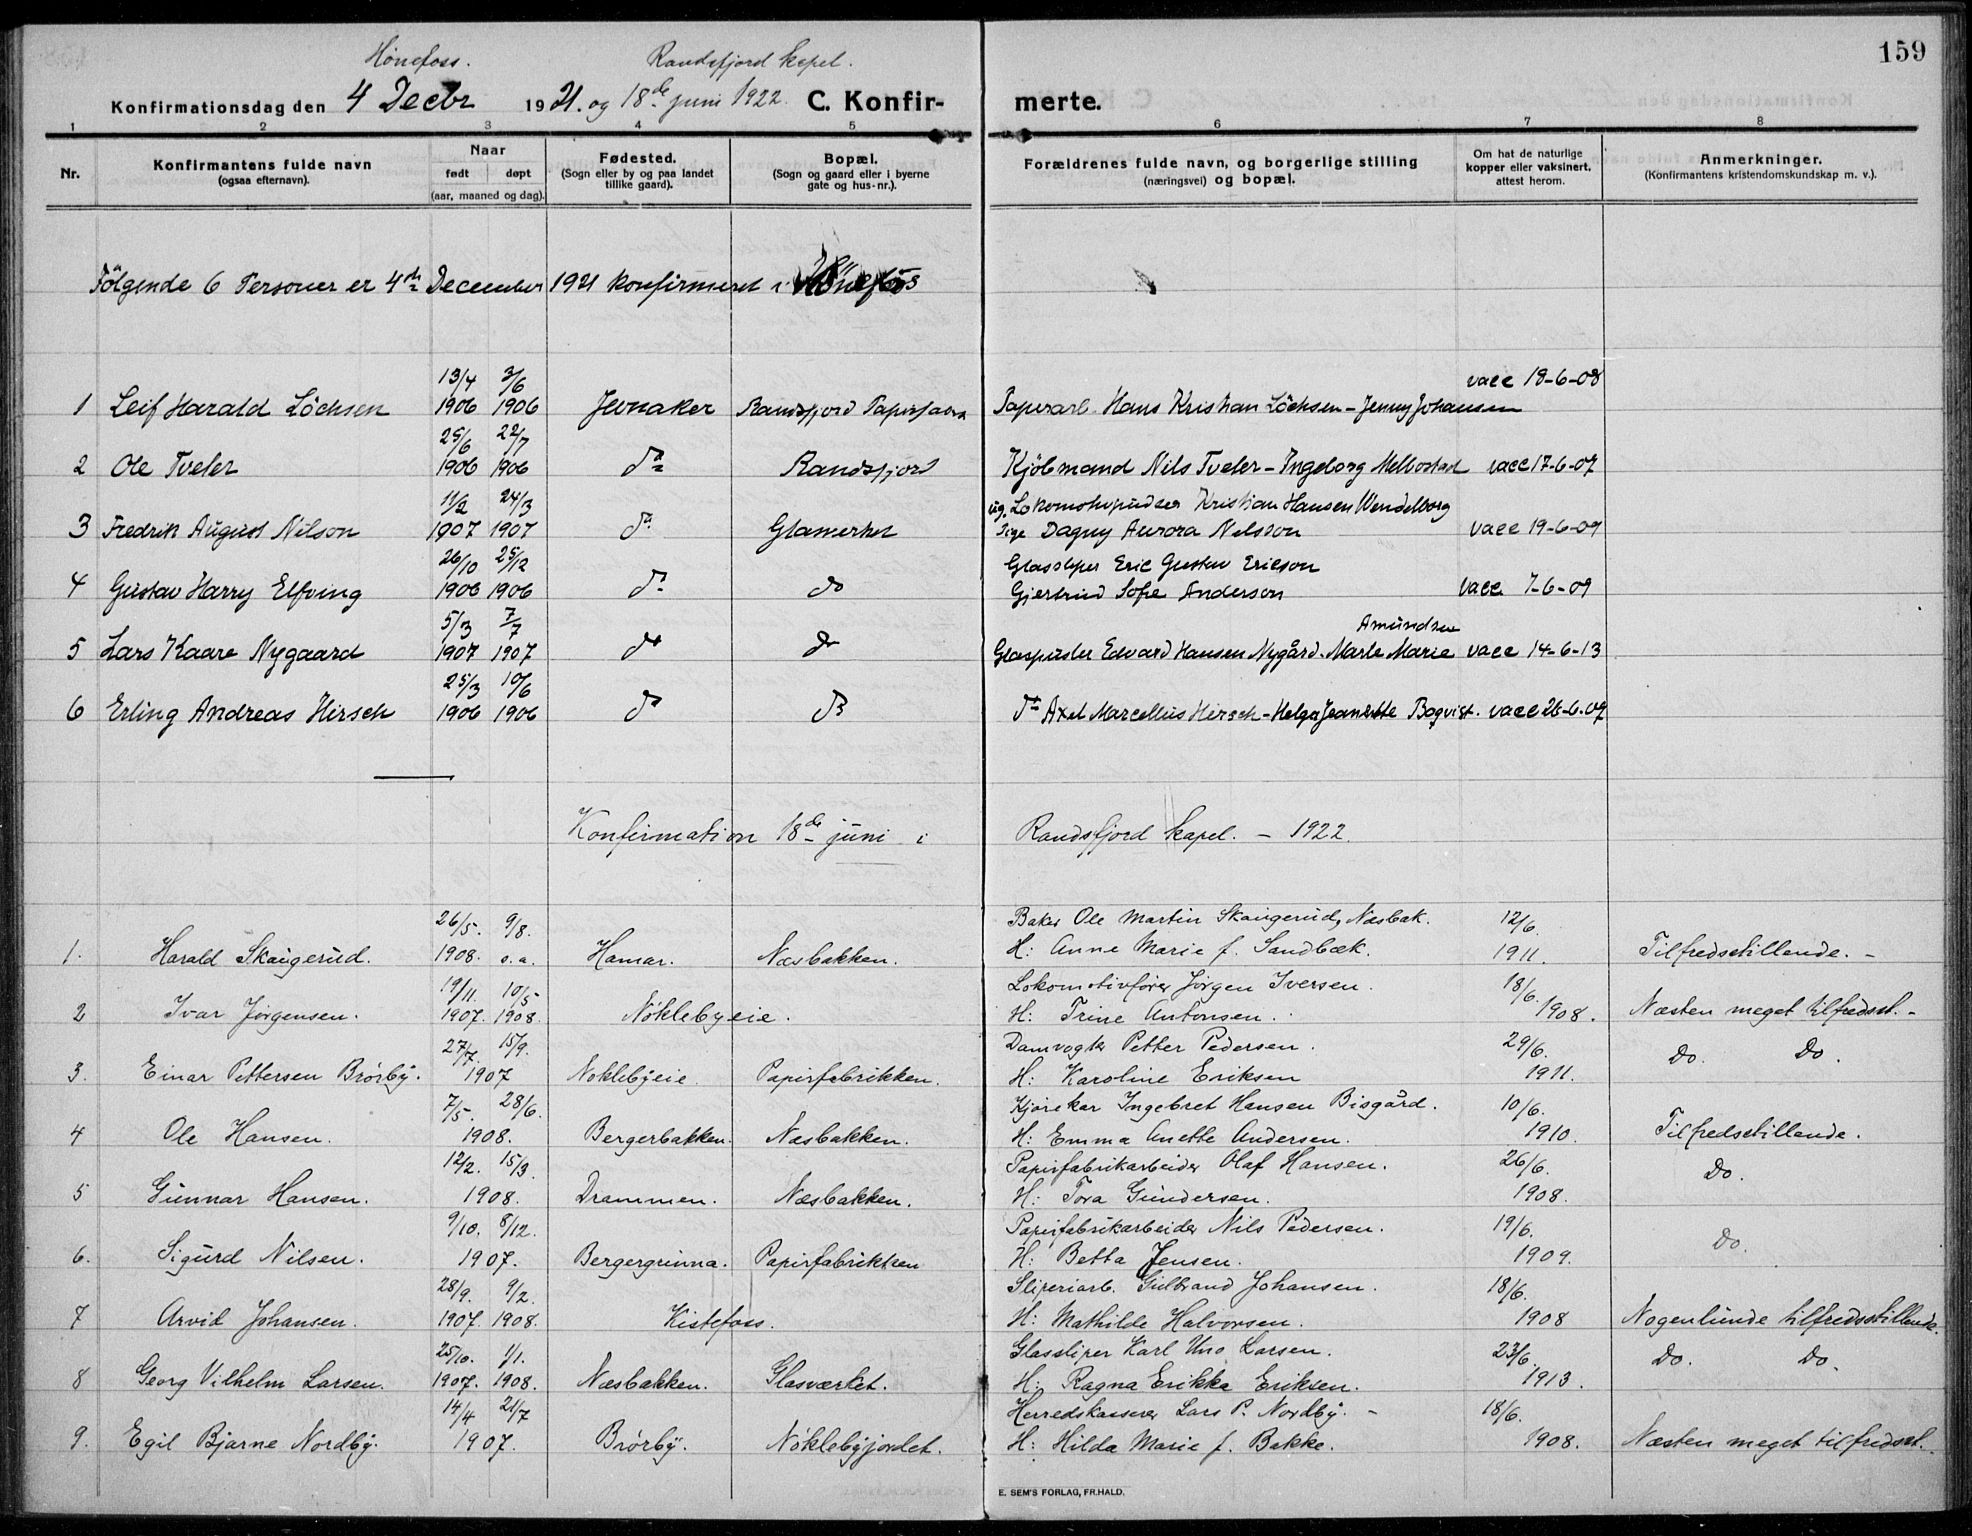 159
Hønefoss. Randsfjord kapel.
Konfirmationsdag den 4 Decbr 1921. og 18de juni 1922. C. Konfirmerte.
1 2 3 4 5 6 7 8
Nr. Konfirmantens fulde navn (ogsaa efternavn). Naar født døpt (aar, maaned og dag). Fødested. (Sogn eller by og paa landet tillike gaard). Bopæl. (Sogn og gaard eller i byerne gate og hus-nr.). Forældrenes fulde navn, og borgerlige stilling (næringsvei) og bopæl. Om hat de naturlige kopper eller vaksinert, attest herom. Anmerkninger. (Konfirmantens kristendomskundskap m. v.).
Følgende 6 Personer er 4de December 1921 konfirmeret i Hönefos
13/4 3/6 vacc 18-6-08
1 Leif Harald Löchsen 1906 1906 Jevnaker Randsfjord Papirfabrik Papirarb. Hans Kristian Löchsen - Jenny Johansen
25/6 22/7
2 Ole Tveter 1906 1906 do Randsfjord Kjöbmand Nils Tveter - Ingeborg Melbostad vacc 17-6-07
11/2 24/3 ug. Lokomotivpudser Kristian Hansen Wendelborg
3 Fredrik August Nilson 1907 1907 do Glasverket Pige Dagny Aurora Nelsson vacc 19-6-09
26/10 25/12 Glassliper Eric Gustav Ericson
4 Gustav Harry Elfving 1906 1906 do do Gjertrud Sofie Anderson vacc 7-6-09
5/3 7/7 Amundsen
5 Lars Kaare Nygaard 1907 1907 do do Glaspuster Edvard Hansen Nygård - Marte Marie vacc 14-6-13
25/3 10/6
6 Erling Andreas Hirsch 1906 1906 do do do Axel Marcellus Hirsch - Helga Jeanette Boqvist. vacc 26-6-07
Konfirmation 18de juni i Randsfjord kapel. - 1922.
26/5. 9/8. Baker Ole Martin Skaugerud, Næsbak. 12/6.
1. Harald Skaugerud. 1908. s.a. Hamar. Næsbakken. H: Anne Marie f. Sandbæk. 1911. Tilfredsstillende. -
19/11. 10/5 Lokomotivfører Jørgen Iversen. 18/6.
2 Ivar Jørgensen. 1907. 1908. Nöklebyeie. H: Trine Antonsen. 1908. Næsten meget tilfredsst. -
27/7. 15/9. Damvogter Petter Pedersen. 29/6.
3. Einar Pettersen Brørby. 1907 Nöklebyeie Papirfabrikken. H: Karoline Eriksen 1911. Do. Do.
7/5. 28/6. Kjørekar Ingebret Hansen Bisgård. 10/6.
4 Ole Hansen. 1908. Bergerbakken. Næsbakken. H: Emma Anette Andersen. 1910. Tilfredsstillende.
12/2. 15/3. Papirfabrikarbeider Olaf Hansen. 26/6.
5 Gunnar Hansen. 1908. Drammen. Næsbakken. H: Tora Gundersen. 1908. Do.
9/10. 8/12. Papirfabrikarbeider Nils Pedersen. 19/6.
6. Sigurd Nilsen. 1907. Bergergrinna. Papirfabrikken H: Betta Jensen. 1909. Do.
28/9. 9/2. Sliperiarb. Gulbrand Johansen. 18/6.
7 Arvid Johansen. 1907. 1908. Kistefoss. H: Mathilde Halvorsen. 1908 Nogenlunde tilfredsstillende.
25/10. 1/1. Glassliper Karl Uno Larsen. 23/6.
8 Georg Vilhelm Larsen. 1907. 1908. Næsbakken. Glasværket. H: Ragna Erikka Eriksen. 1913. Do. Do.
14/4 21/7 Herredskasserer Lars P. Nordby. - 18/6.
9. Egil Bjarne Nordby. 1907. Brørby. Nöklebyjordet. H: Hilda Marie f. Bakke. 1908. Næsten meget tilfredsst. -
E. SEM'S FORLAG, FR.HALD.